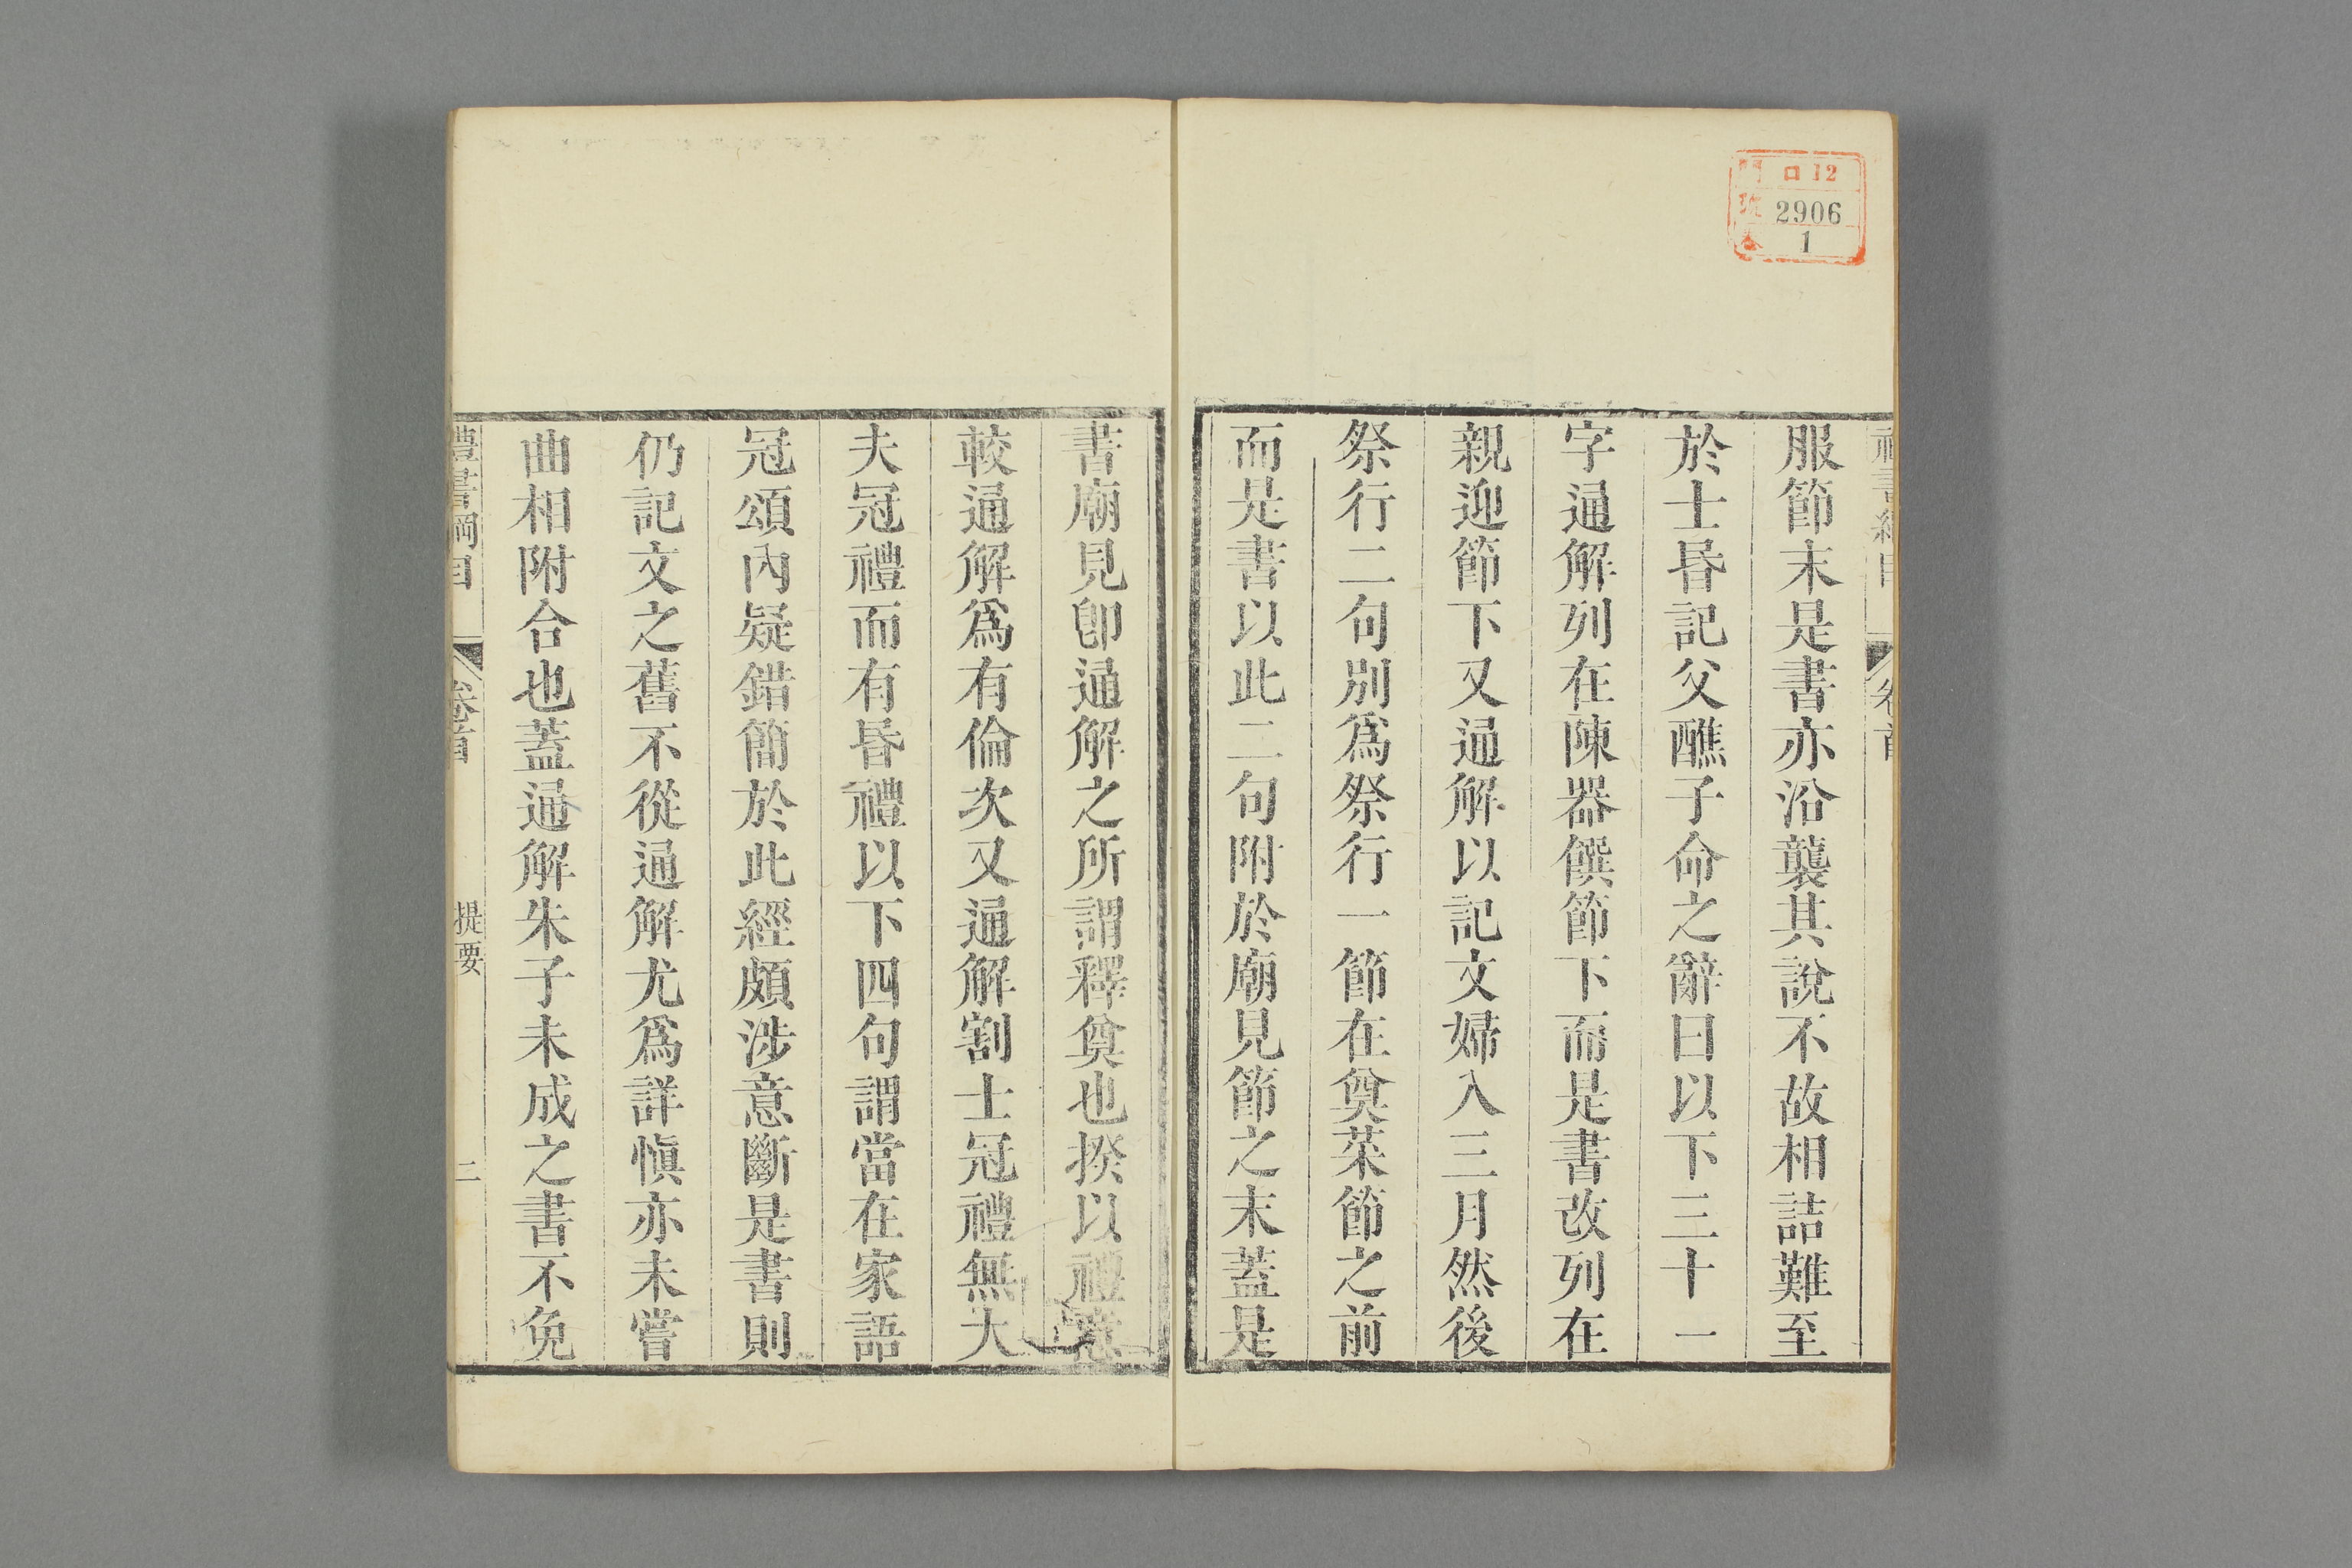 門 ロ12
號 2906
卷 1
禮書綱目 卷首
服節末是書亦沿襲其說不故相詰難至
於士昏記父醮子命之辭曰以下三十一
字通解列在陳器饌節下而是書改列在
親迎節下又通解以記文婦入三月然後
祭行二句別爲祭行一節在奠菜節之前
而是書以此二句附於廟見節之末蓋是
書廟見卽通解之所謂釋奠也揆以禮意
較通解爲有倫次又通解割士冠禮無大
夫冠禮而有昏禮以下四句謂當在家語
冠頌內疑錯簡於此經頗涉意斷是書則
仍記文之舊不從通解尤爲詳愼亦未嘗
曲相附合也蓋通解朱子未成之書不免
禮書綱目 卷首 提要 二